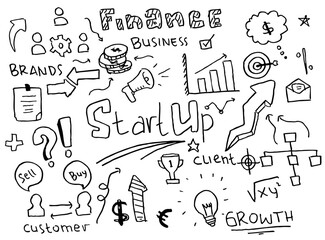 Finance
BUSINESS
$
BRANDS
StartUp
?!
client
Sell
Buy
√xy²
$
€
GROWTH
customer